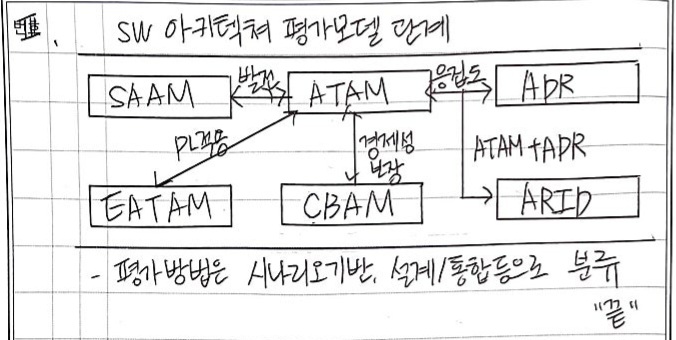 SW 아키텍쳐 평가모델 단계
SAAM 발전 ATAM 응집도 ADR
PL적용 경제성 보장 ATAM+ADR
EATAM CBAM ARID
- 평가방법은 시나리오기반, 설계/통합등으로 분류
"끝"